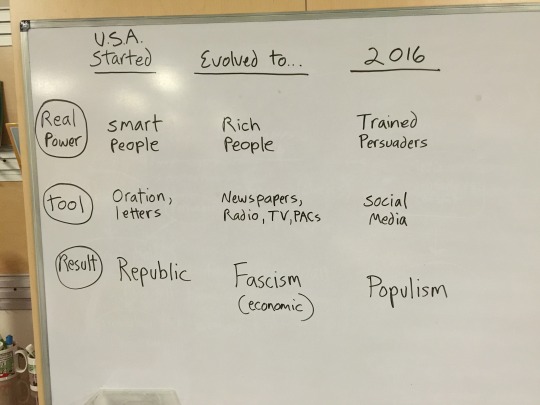 U.S.A. Started
Evolved to...
2016
Real Power
smart People
Rich People
Trained Persuaders
Tool
Oration, letters
Newspapers, Radio, TV, PACs
Social Media
Result
Republic
Fascism (economic)
Populism